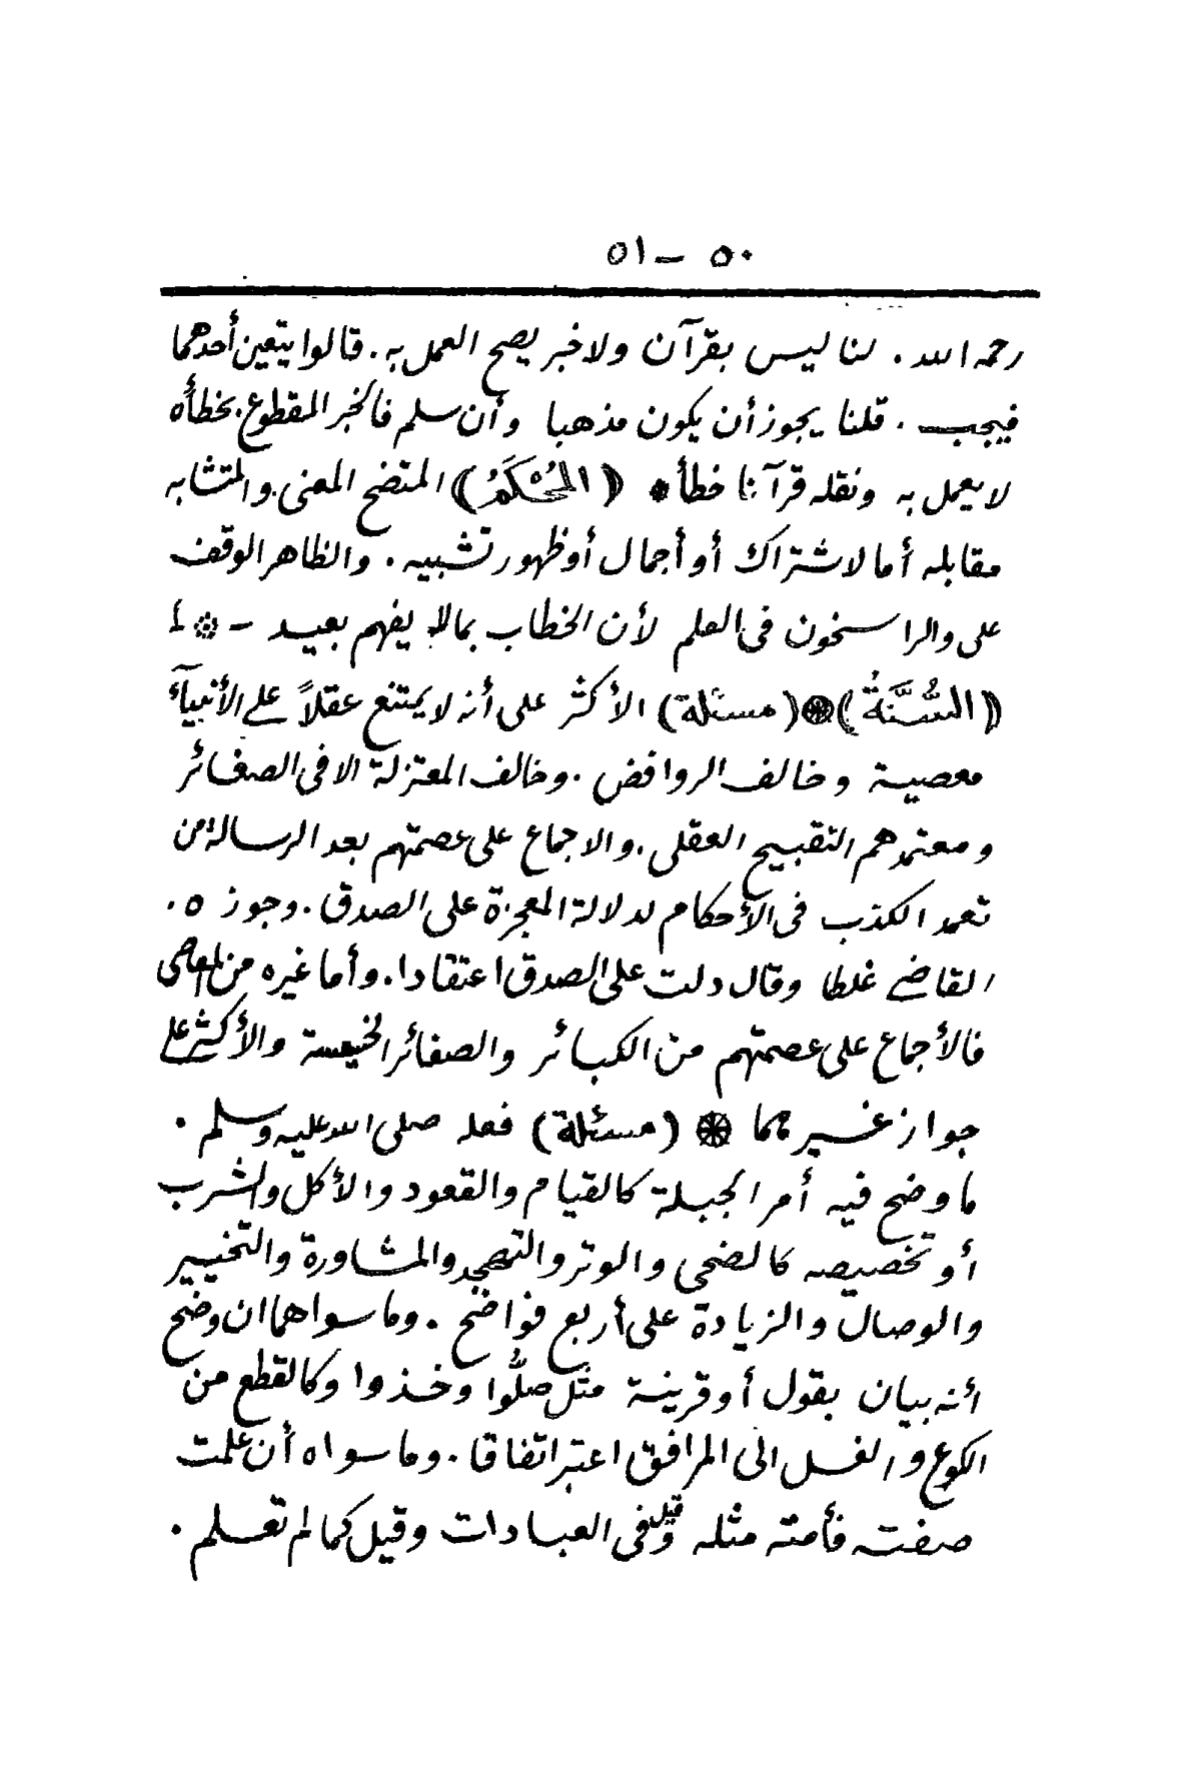 ٥٠ – ٥١
رحمه الله . لنا ليس بقرآن ولا خبر يصح العمل به . قالوا يتعين أحدهما
فيجب . قلنا يجوز أن يكون مذهبا وأن سلم فالخبر المقطوع بخطأه
لا يعمل به ونقله قرآنا خطأ * (المُحْكَمُ) المتضح المعنى والمتشابه
مقابله أما لاشتراك أو أجمال أو ظهور تشبيه . والظاهر الوقف
على والراسخون فى العلم لأن الخطاب بمالا يفهم بعيد –
(السُّنَّةُ) * (مسئلة) الأكثر على أنه لا يمتنع عقلاً على الأنبيآء
معصية وخالف الروافض . وخالف المعتزلة الا فى الصغائر
ومعتمدهم التقبيح العقلى . والاجماع على عصمتهم بعد الرسالة من
تعمد الكذب فى الأحكام لدلالة المعجزة على الصدق . وجوزه .
القاضى غلطا وقال دلت على الصدق اعتقادا . وأما غيره من المعاصى
فالأجماع على عصمتهم من الكبائر والصغائر الخسيسة والأكثر على
جواز غيرهما * (مسئلة) فعله صلى الله عليه وسلم .
ما وضح فيه أمر الجبلة كالقيام والقعود والأكل والشرب
أو تخصيصه كالضحى والوتر والتهجد والمشاورة والتخيير
والوصال والزيادة على أربع فواضح . وما سواهما ان وضح
أنه بيان بقول أو قرينة مثل صلُّوا وخذوا وكالقطع من
الكوع والغسل الى المرافق اعتبر اتفاقا . وما سواه أن علمت
صفته فأمته مثله وقيل فى العبادات وقيل كما لم تعلم .